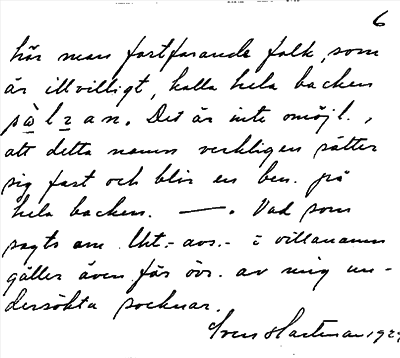 6
hör man fortfarande folk, som
är illvilligt, kalla hela backen
sàlzan. Det är inte omöjl.,
att detta namn verkligen sätter
sig fast och blir en ben. på
hela backen. —. Vad som
sagts om Utt.- avs.- i villanamn
gäller även för övr. av mig un-
dersökta socknar.
Sven Hartman 192